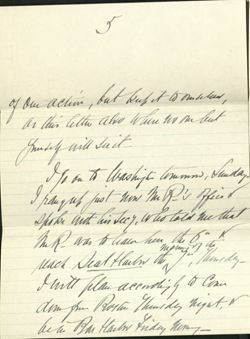 5
of our action, but keep it to ourselves,
or this letter also where no one but
yourself will see it
I go on to Washington tomorrow, Sunday.
I rang up just now Mr R's office &
spoke with his secy, who told me that
Mr R. was to leave here the 6th &
morning of the
reach Seal Harbor the 7th, Thursday.
I will plan accordingly to come
down from Boston Thursday night, &
be in Bar Harbor Friday morning